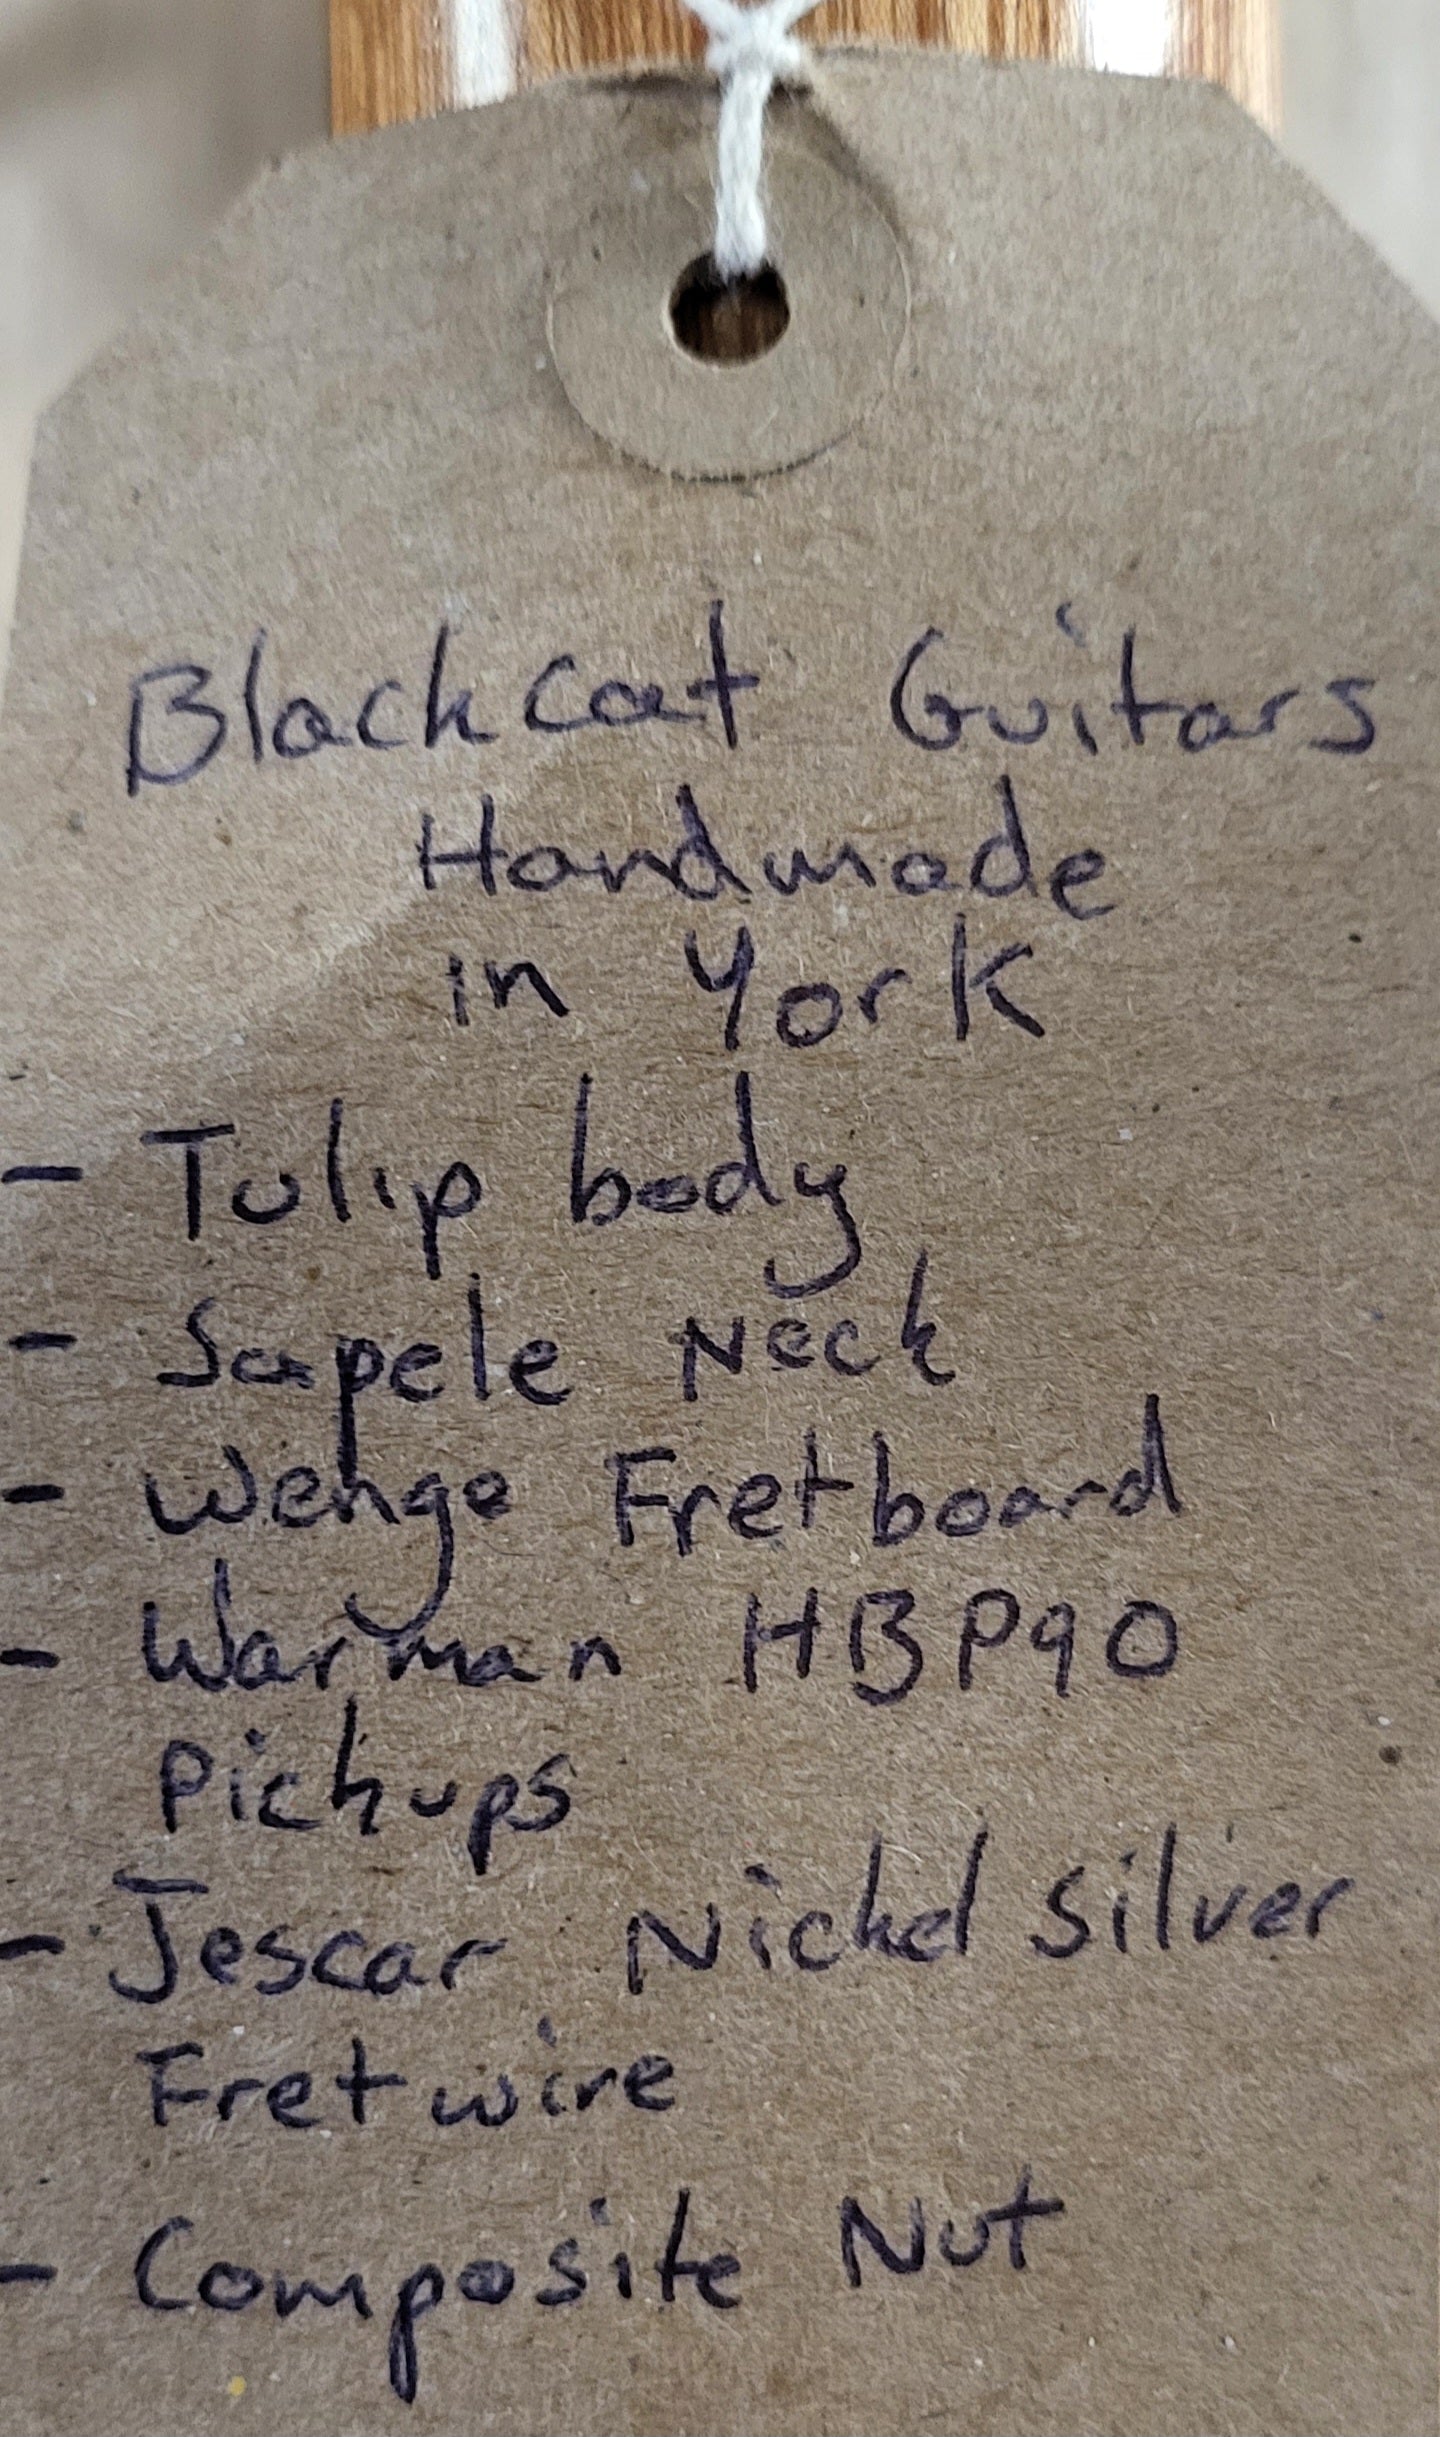 Blackcat Guitars
Handmade
in York
- Tulip body
- Sapele Neck
- Wenge Fretboard
- Warman HBP90
Pickups
- Jescar Nickel silver
Fretwire
- Composite Nut